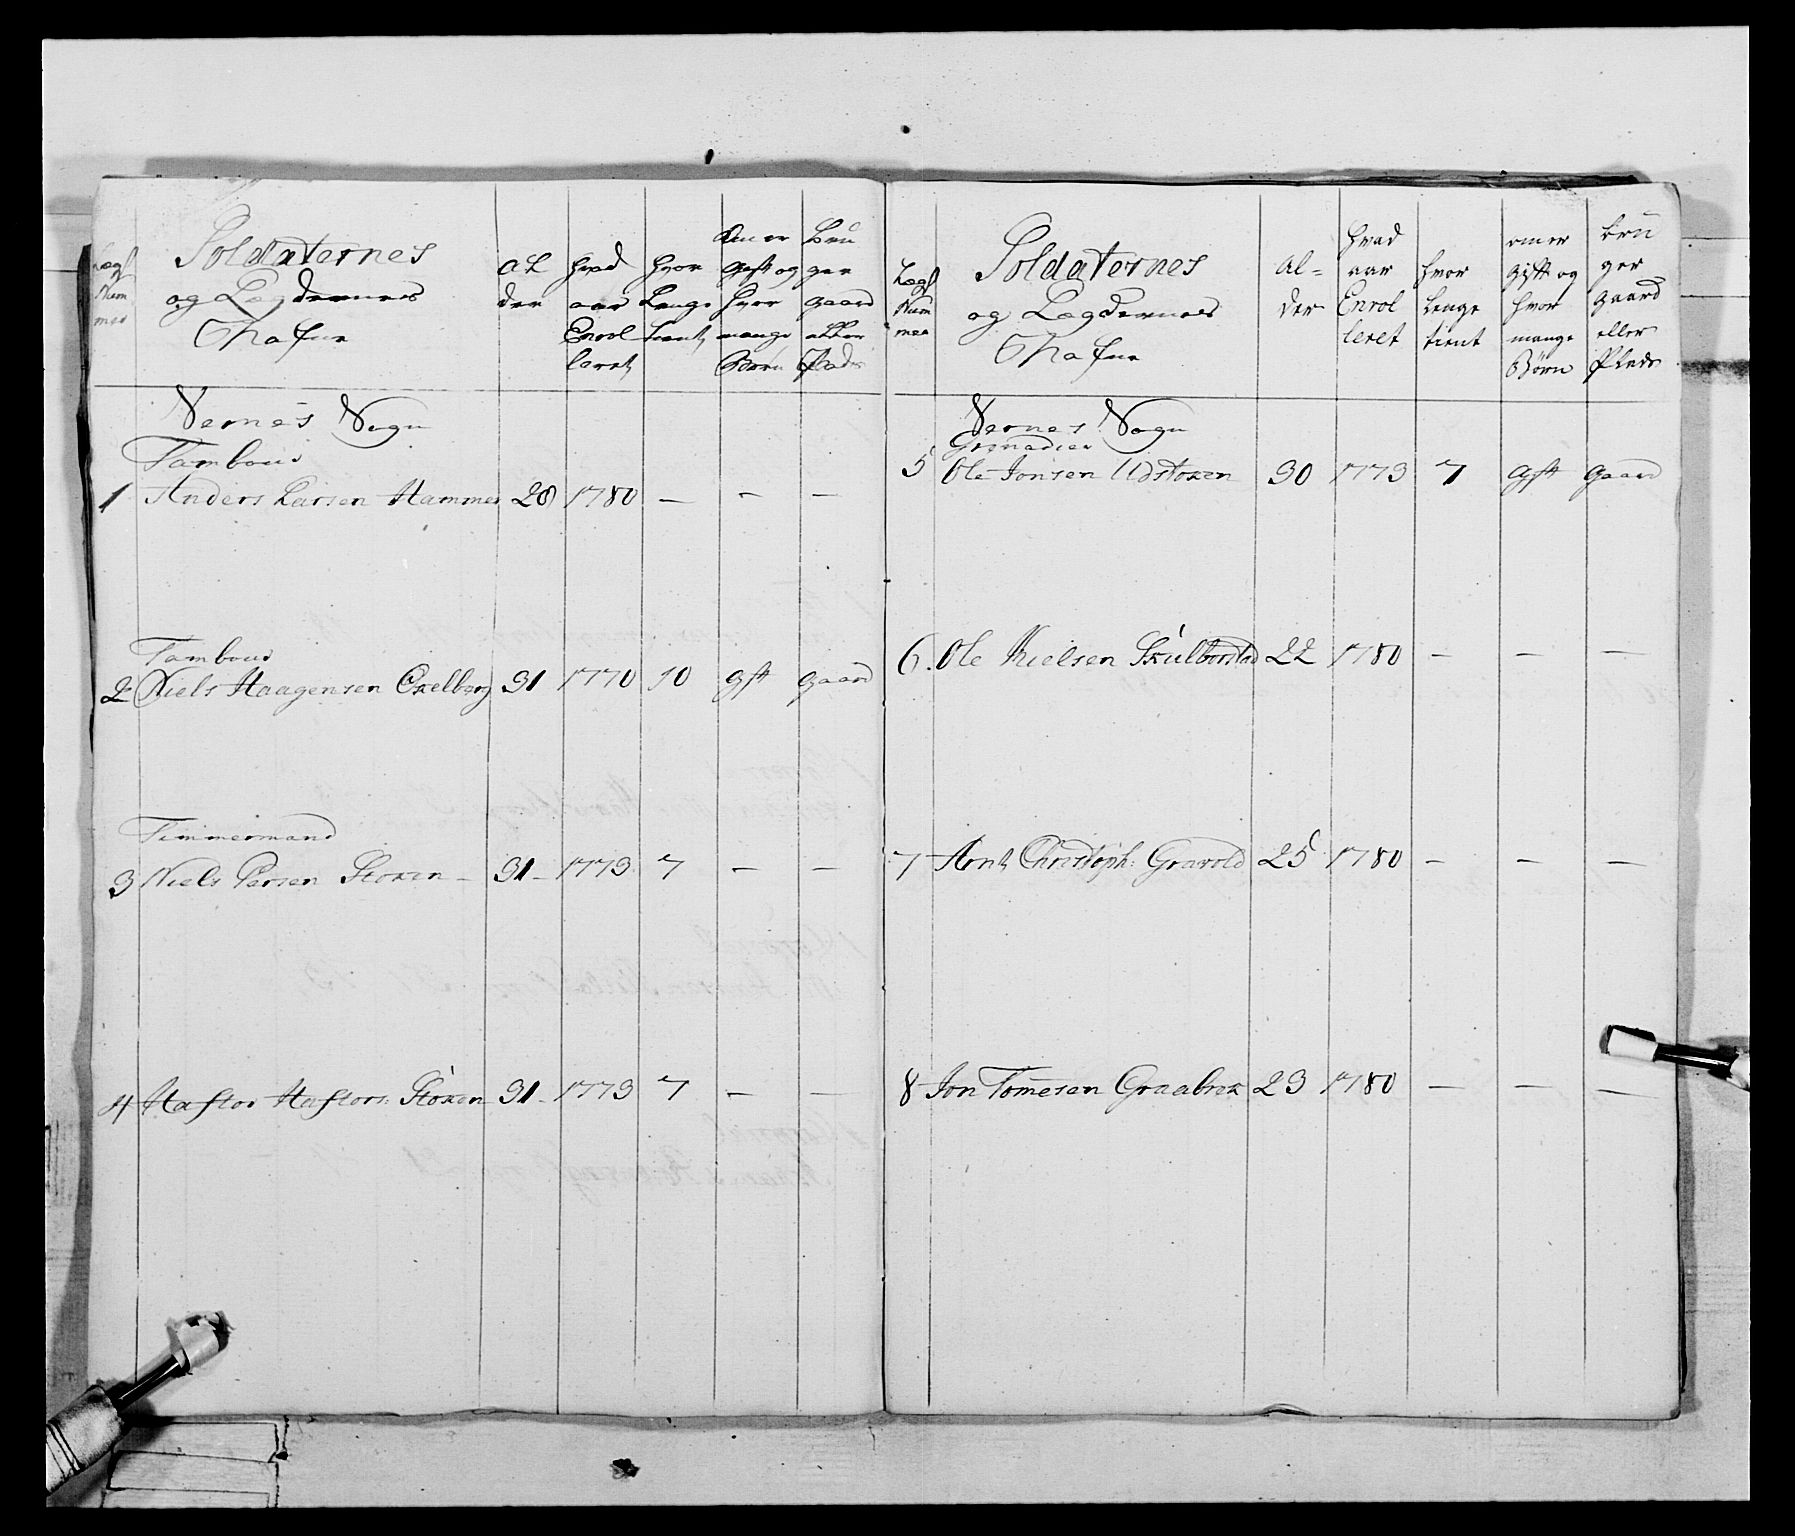 Lægs
Num
mer
Soldaternes
og Lægdernes
Nafne
al
der
hvad
aar
Enrol
leret
hvor
Lenge
tient
om er
gift og
hvor
mange
Børn
bru
ger
gaard
eller
Plads
Vernes Sogn
Tambour
1 Anders Larsen Hammer 28 1780 — — —
Tambour
2 Niels Haagensen Exelberg 31 1770 10 gift gaard
Timmermand
3 Niels Persen Stoxen – 31 – 1773 7 — —
4 Haftor Haftors: Stoxen 31 – 1773 7 — —
Lægs
Num
mer
Soldaternes
og Lægdernes
Nafne
al=
der
hvad
aar
Enrol
leret
hvor
lenge
tient
om er
gift og
hvor
mange
Børn
bru
ger
gaard
eller
Plads
Vernes Sogn
Grenadier
5 Ole Jonsen Udstoxen 30 1773 7 gift gaard
6. Ole Nielsen 22 1780 — — —
7 Arnt Christoph: Gravold 25 1780 — — —
8 Jon Tomesen Graabrex 23 1780 — — —